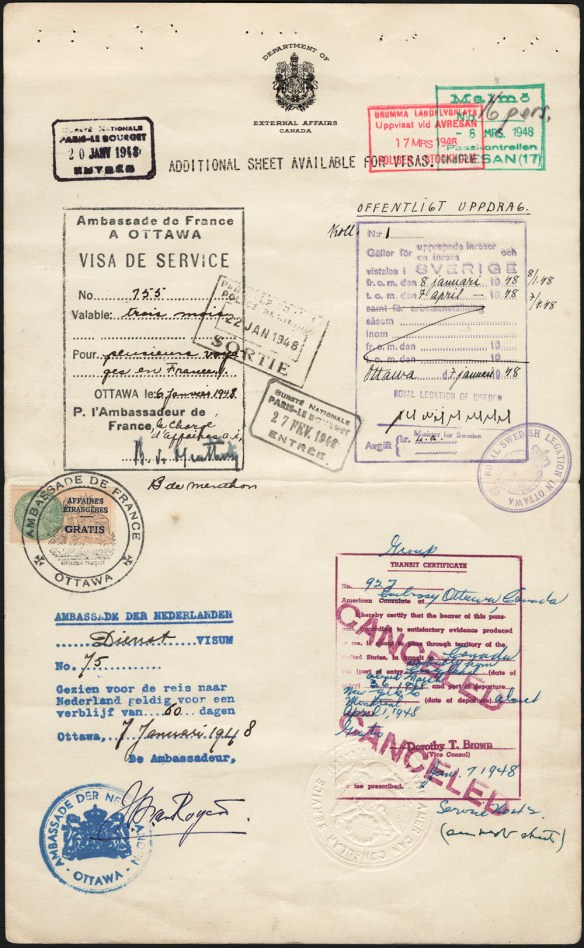 DEPARTMENT OF
EXTERNAL AFFAIRS
CANADA
SURETÉ NATIONALE
PARIS-LE BOURGET
20 JANV 1948
ENTRÉE
BROMMA LANDFLYGPLATS
Uppvisat vid AVRESAN
17 MRS 1948
POLISEN STOCKHOLM
Malmö
16 pers.
- 8 MRS. 1948
Passkontrollen
(17)
ADDITIONAL SHEET AVAILABLE FOR VISAS.
Ambassade de France
A OTTAWA
VISA DE SERVICE
No. 755
Valable: trois mois
Pour plusieurs voya
ges en France
OTTAWA le 6 janvier 1948.
P. l'Ambassadeur de
France, le chargé
d'affaires a.i.
22 JAN 1948
SORTIE
SURETÉ NATIONALE
PARIS-LE BOURGET
27 FEV. 1948
ENTRÉE
OFFENTLIGT UPPDRAG.
Koll.
Nr 1
Gäller för upprepade inresor och
en inresa
vistelse i SVERIGE
fr. o. m. den 8 januari 1948
t. o. m. den 7 april 1948
samt för
såsom
Inom
fr. o. m. den 19
t. o. m. den 19
Ottawa d. 7 januari 1948
ROYAL LEGATION OF SWEDEN
Minister for Sweden
Avgift kr.
ROYAL SWEDISH LEGATION IN OTTAWA
AMBASSADE DE FRANCE
OTTAWA
AFFAIRES
ÉTRANGÈRES
GRATIS
AMBASSADE DER NEDERLANDEN
Dienst VISUM
No. 75
Gezien voor de reis naar
Nederland geldig voor een
verblijf van 60 dagen
Ottawa, 7 Januari 1948
De Ambassadeur,
AMBASSADE DER NEDERLANDEN
OTTAWA
Group
TRANSIT CERTIFICATE
No. 927
Embassy Ottawa, Canada
American Consulate at
I hereby certify that the bearer of this pass-
port, according to satisfactory evidence produced
to me, is good for transit through territory of the
United States, in transit to Canada
via (port of entry)
(date of entry)
and port of departure
(date of departure)
Montreal
April 1, 1948
Gratis
Dorothy T. Brown
(Vice Consul)
Jan. 7 1948
No fee prescribed.
CANCELED
CANCELED
AMERICAN CONSULAR SERVICE